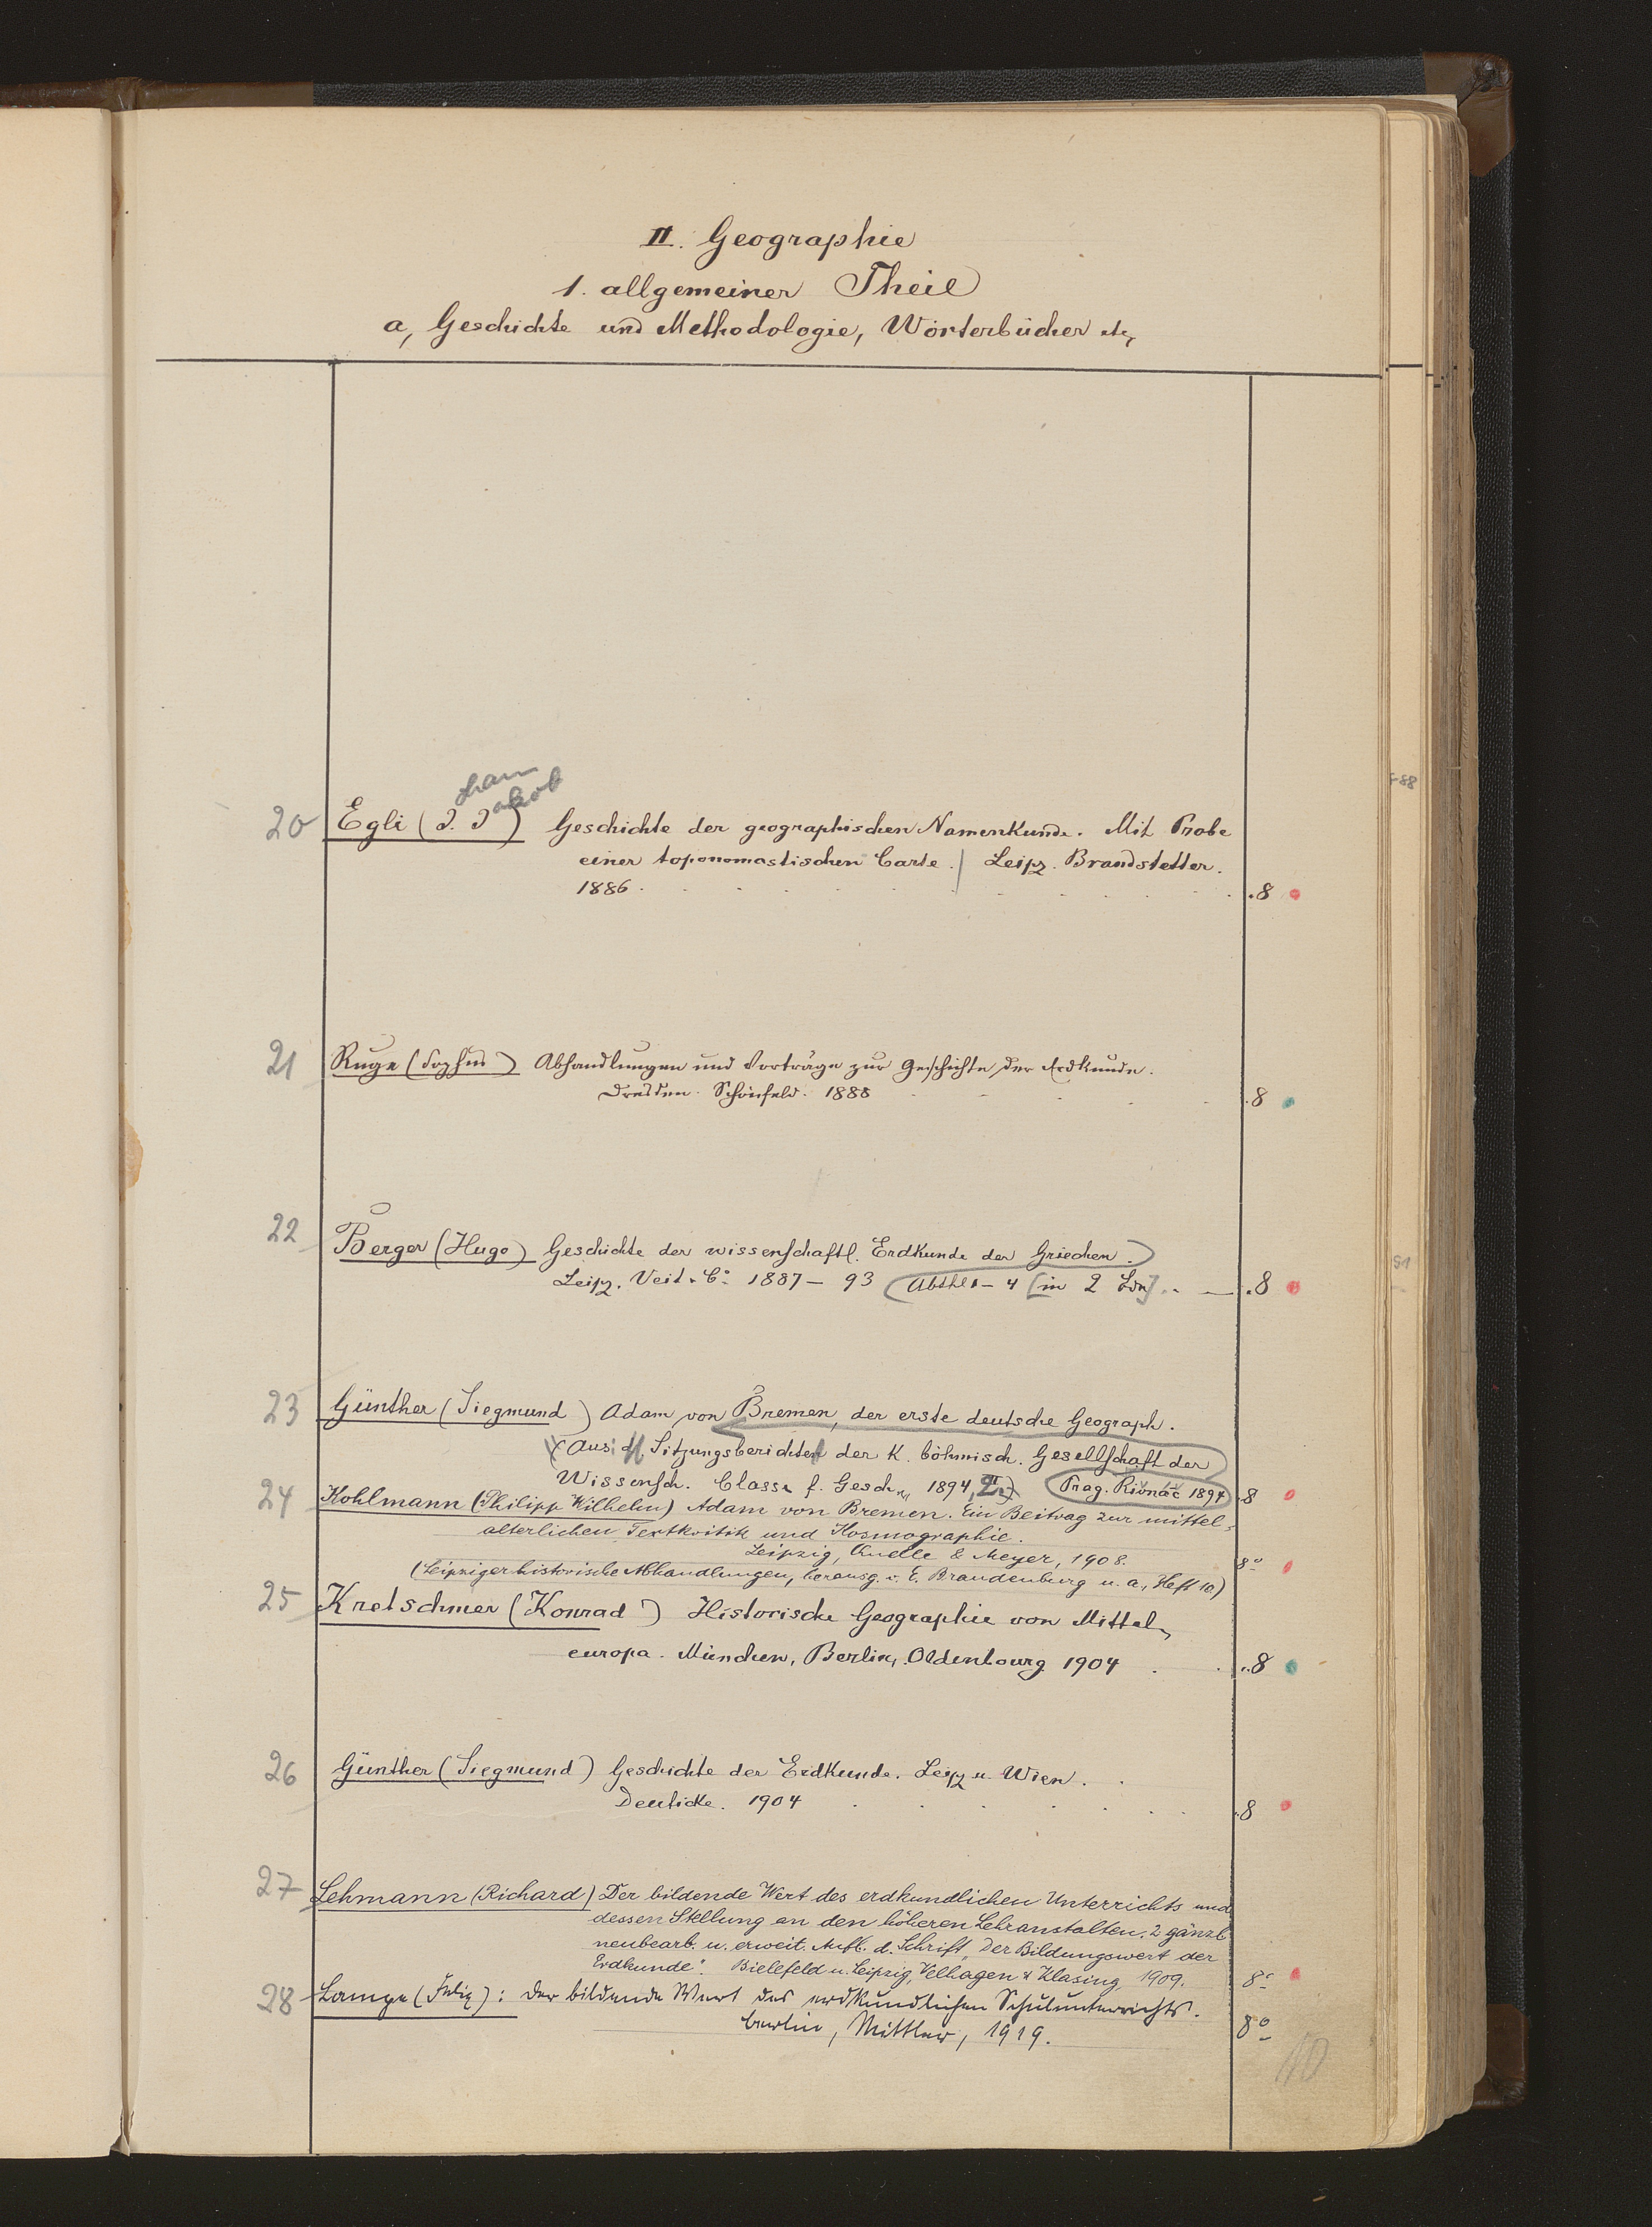 II. Geographie
1. allgemeiner Theil
a, Geschichte und Methodologie, Wörterbücher etc,
ham
akob
20 Egli (J. J ) Geschichte der geographischen Namenkunde. Mit Probe
einer toponomastischen Carte. / Leipz. Brandstetter.
1886 . . . . . . . . .8
21 Ruge (Sophus) Abhandlungen und Vorträge zur Geschichte der Erdkunde.
Dresden. Schönfeld. 1888 . . . . .8
22 Berger (Hugo) Geschichte der wissenschaftl. Erdkunde der Griechen.
Leipz. Veit & Co 1887 – 93 (Abth 1 – 4 [in 2 Bdn] . . — .8
23 Günther (Siegmund) Adam von Bremen, der erste deutsche Geograph.
(Aus: d. Sitzungsberichten der K. böhmisch. Gesellschaft der
Wissensch. Classe f. Gesch., 1894, II.) Prag. Rivnáč 1894 .8
24 Kohlmann (Philipp Wilhelm) Adam von Bremen. Ein Beitrag zur mittel-
alterlichen Textkritik und Kosmographie.
Leipzig, Quelle & Meyer, 1908. 8°
(Leipziger historische Abhandlungen, herausg. v. E. Brandenburg u. a., Heft 10)
25 Kretschmer (Konrad) Historische Geographie von Mittel-
europa. München, Berlin, Oldenbourg 1904 . . .8
26 Günther (Siegmund) Geschichte der Erdkunde. Leipz u. Wien. .
Deuticke. 1904 . . . . . . .8
27 Lehmann (Richard) Der bildende Wert des erdkundlichen Unterrichts und
dessen Stellung an den höheren Lehranstalten. 2 gänzl.
neubearb. u. erweit. Aufl. d. Schrift „Der Bildungswert der
Erdkunde". Bielefeld u. Leipzig, Velhagen & Klasing 1909. 8°
28 Lampe (Felix): Der bildende Wert des erdkundlichen Schulunterrichts.
Berlin, Mittler, 1919. 8°
10